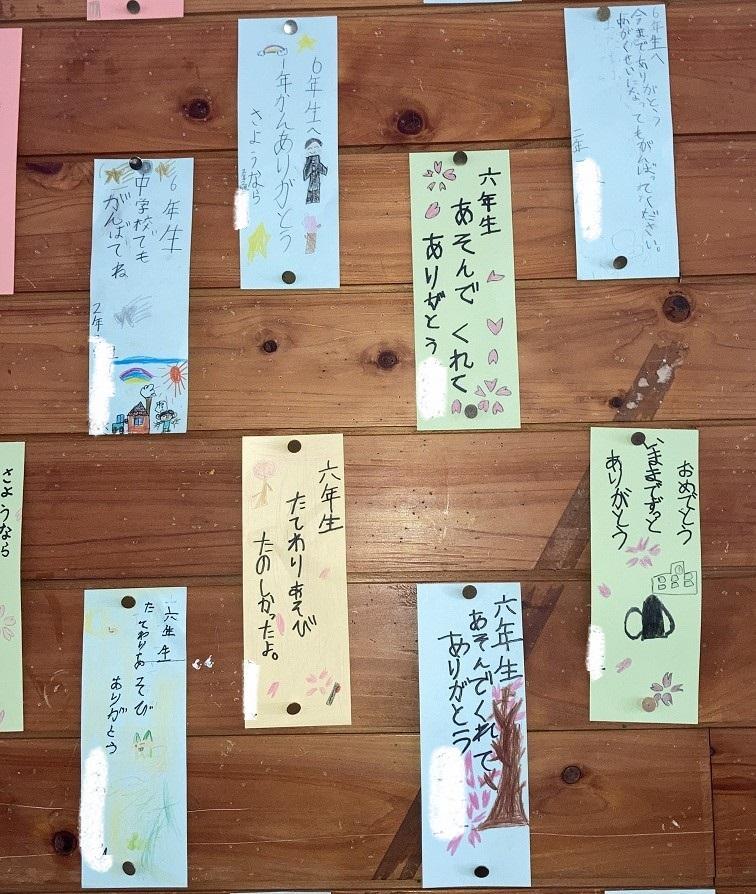 6年生へ
今までありがとう
ちゅうがくせいになってもがんばってください。
二年
6年生へ
1年かんありがとう
さようなら
6年生
中学校でも
がんばてね
2年
六年生
あそんでくれて
ありがとう
おめでとう
いままでずっと
ありがとう
六年生
たてわりあそび
たのしかったよ。
さようなら
六年生
あそんでくれて
ありがとう
六年生
たてわりあそび
ありがとう